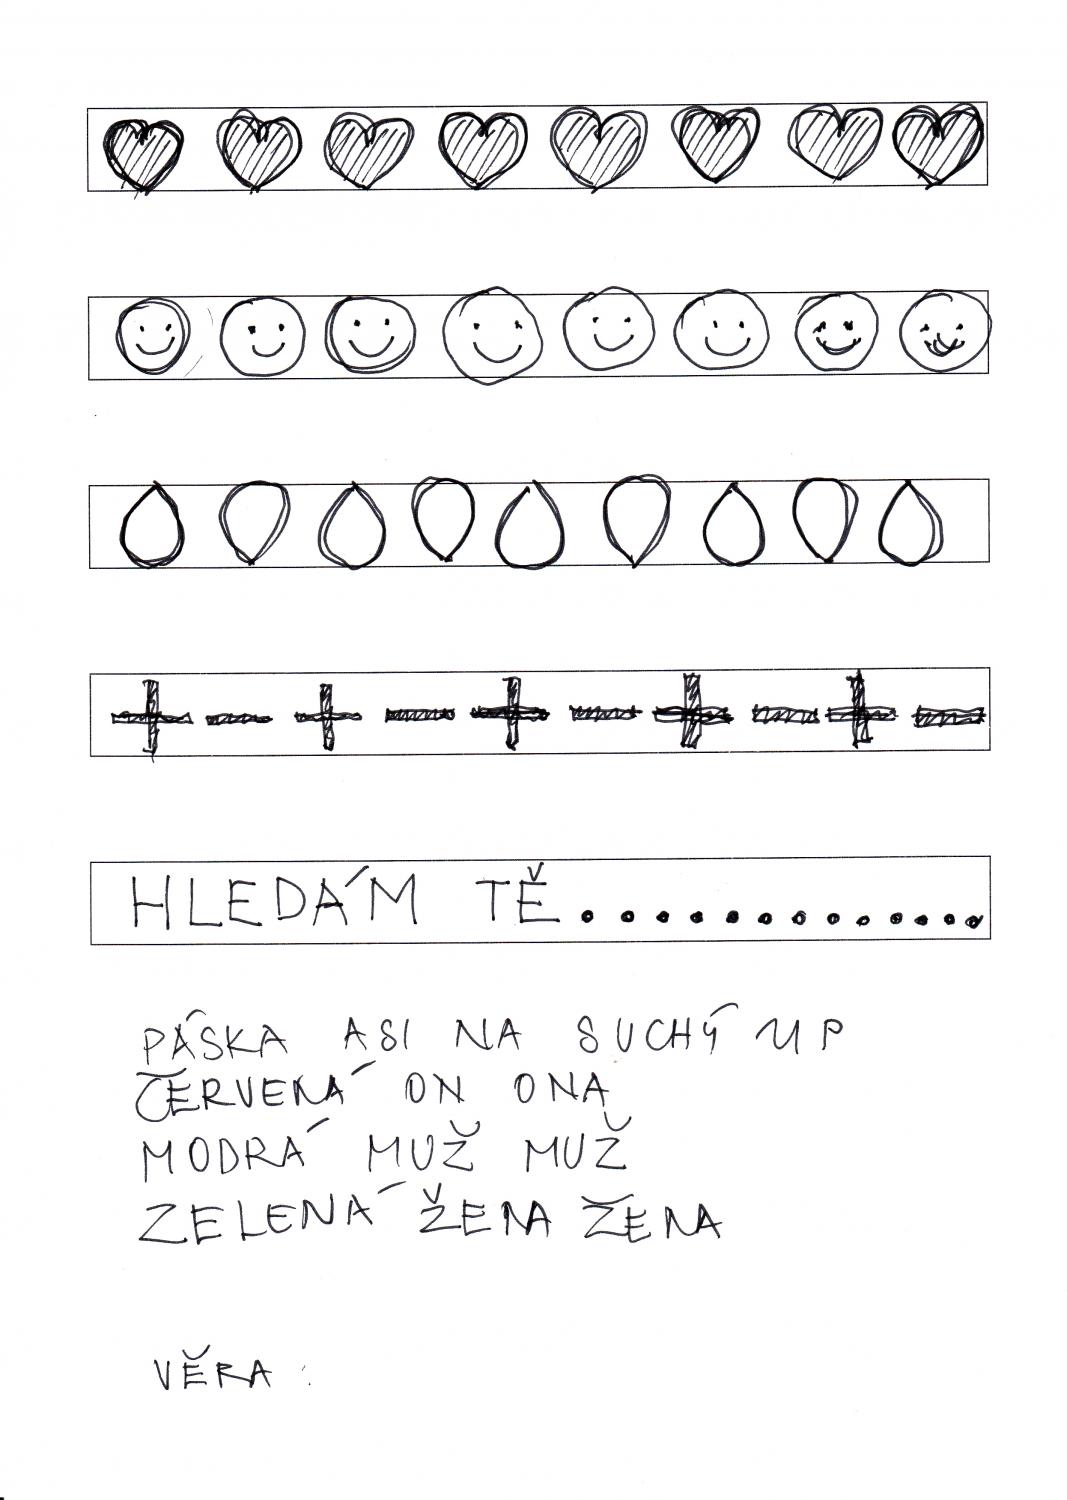 HLEDÁM TĚ..............
PÁSKA ASI NA SUCHÝ UP
ČERVENÁ ON ONA
MODRÁ MUŽ MUŽ
ZELENÁ ŽENA ŽENA
VĚRA